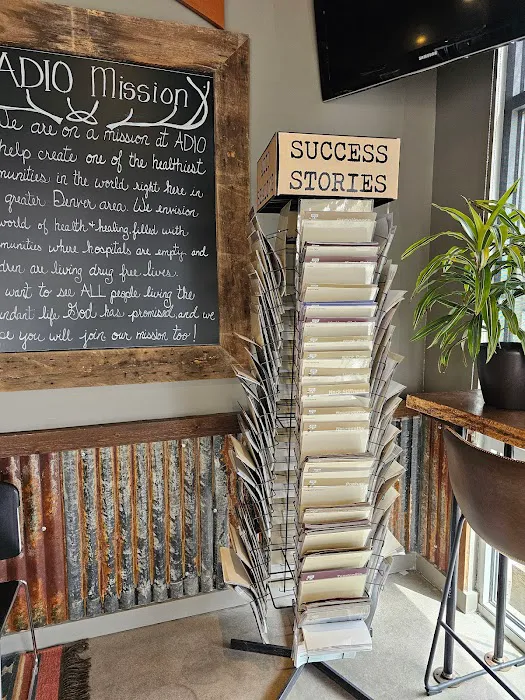 ADIO Mission
We are on a mission at ADIO
help create one of the healthiest
munities in the world right here in
greater Denver area. We envision
world of health + healing filled with
munities where hospitals are empty and
dren are living drug free lives.
want to see ALL people living the
undant life God has promised, and we
pe you will join our mission too!
SUCCESS
STORIES
SAMSUNG